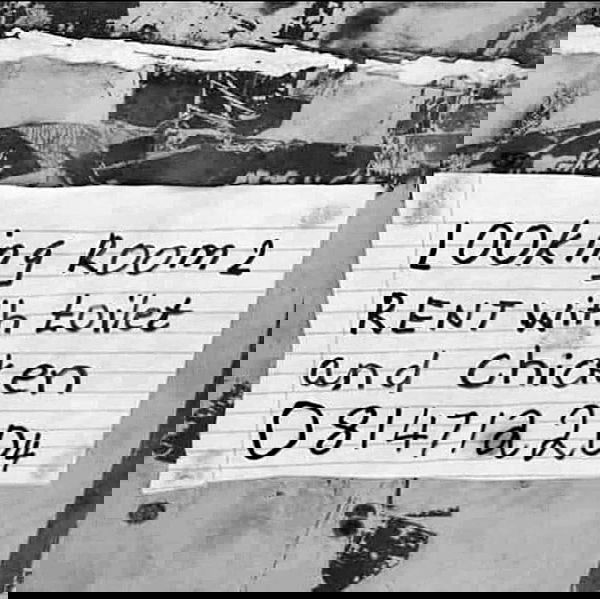 Looking Room 2
RENT with toilet
and chicken
0814712204